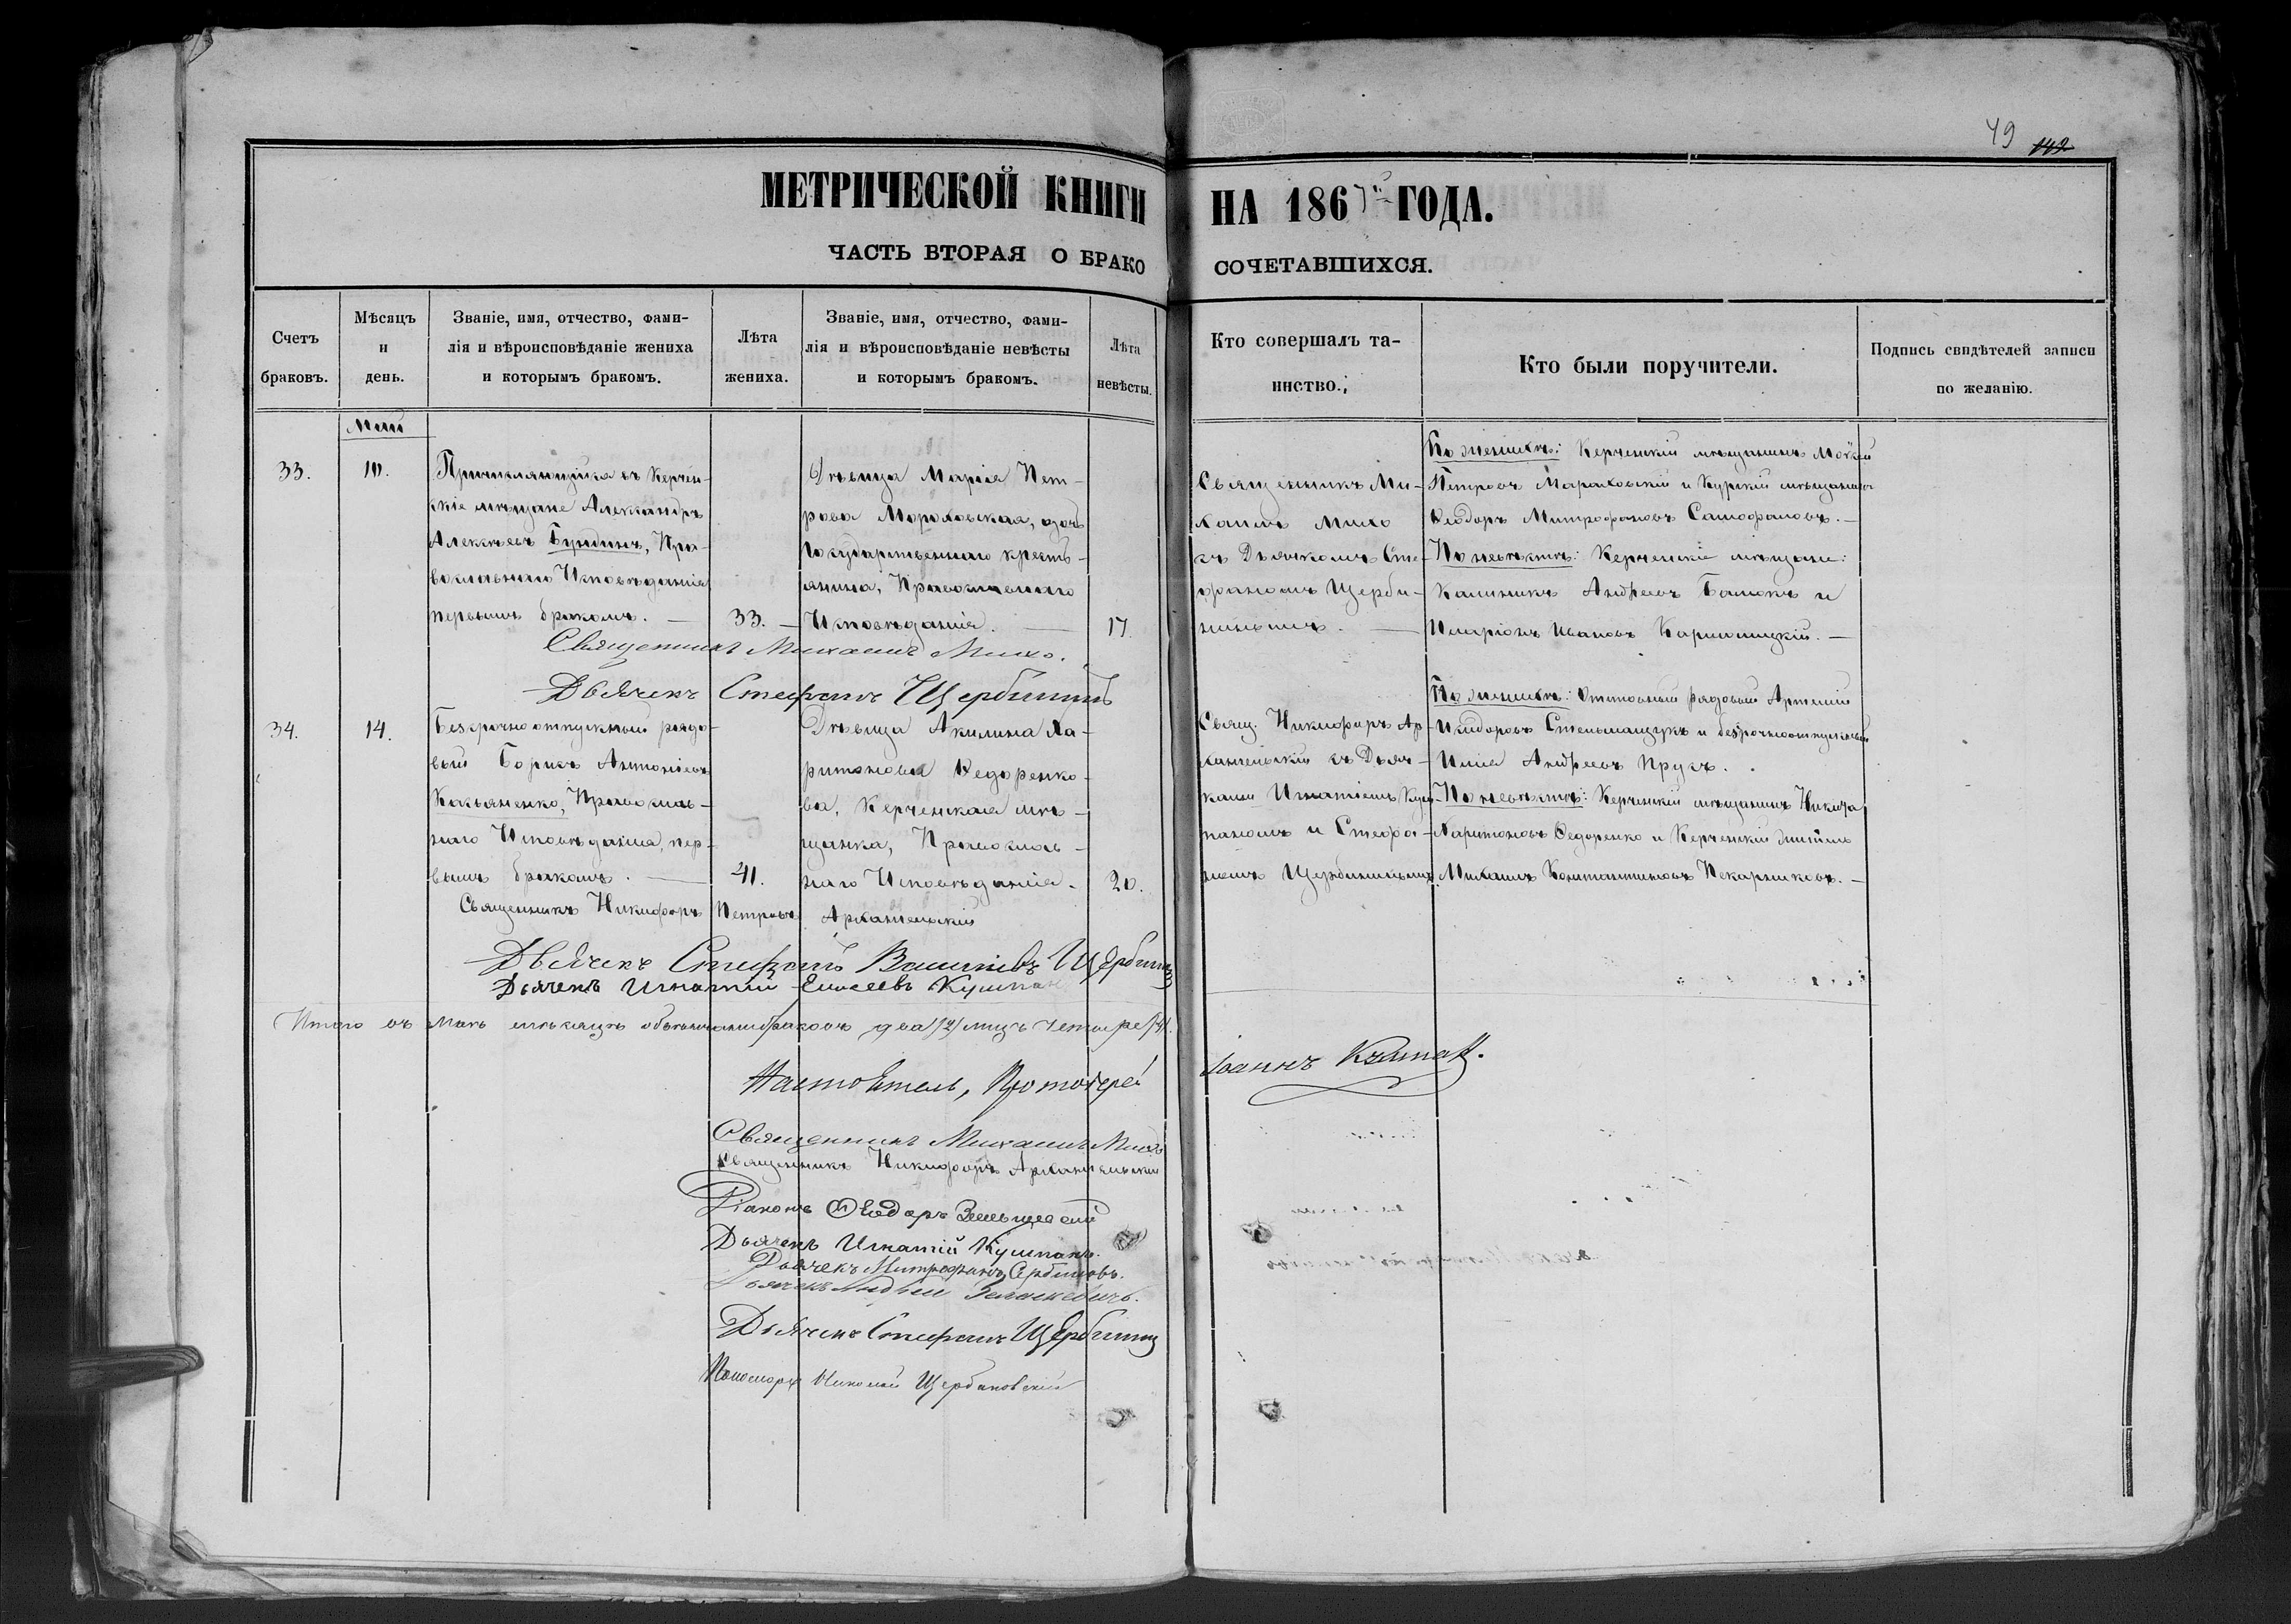 49 142
МЕТРИЧЕСКОЙ КНИГИ НА 1867й ГОДА.
ЧАСТЬ ВТОРАЯ О БРАКОСОЧЕТАВШИХСЯ.
Счетъ браковъ.
Мѣсяцъ и день.
Званіе, имя, отчество, фами-
лія и вѣроисповѣданіе жениха
и которымъ бракомъ.
Лѣта жениха.
Званіе, имя, отчество, фами-
лія и вѣроисповѣданіе невѣсты
и которымъ бракомъ.
Лѣта невѣсты.
Кто совершалъ та-
инство.
Кто были поручители.
Подпись свидѣтелей записи
по желанію.
Май
33.
10.
Причисляющійся въ Керчен-
скіе мѣщане Александръ
Алексѣевъ Бундинъ, Пра-
вославнаго Исповѣданія
первымъ бракомъ.
33.
Дѣвица Марія Пет-
рова Мороховская, дочь
Государственнаго кресть-
янина, Православнаго
Исповѣданія.
17
Священникъ Ми-
хаилъ Михо
съ Дьячкомъ Сте-
фаномъ Щерби-
нинымъ.
По женихѣ: Керченскій мѣщанинъ Мойсей
Петровъ Мараховскій и Курскій мѣщанинъ
Ѳеодоръ Митрофановъ Самофаловъ.
По невѣстѣ: Керченскіе мѣщане:
Калиникъ Андреевъ Балокъ и
Иларіонъ Ивановъ Кармалицкій.
Священникъ Михаилъ Михо.
Дьячекъ Стефанъ Щербининъ
34.
14.
Безсрочноотпускный рядо-
вый Борисъ Антоніевъ
Касьяненко, Православ-
наго Исповѣданія, пер-
вымъ бракомъ.
41.
Дѣвица Акилина Ха-
ритонова Ѳедоренко-
ва, Керченская мѣ-
щанка, Православ-
наго Исповѣданія.
20.
Свящ. Никифоръ Ар-
хангельскій съ Дьяч-
ками Игнатіемъ Куш-
паномъ и Стефа-
номъ Щербининымъ.
По женихѣ: Отставный рядовый Артемій
Исидоровъ Стельмащукъ и безсрочноотпускный
Илія Андреевъ Прусъ.
По невѣстѣ: Керченскій мѣщанинъ Никита
Харитоновъ Ѳедоренко и Керченскій житель
Михаилъ Константиновъ Пекарниковъ.
Священникъ Никифоръ Петровъ Архангельскій
Дьячекъ Стефанъ Васильевъ Щербининъ
Дьячекъ Игнатій Елисеевъ Кушпан
Итого въ Маѣ мѣсяцѣ обвѣнчанныхъ браковъ два /2/ лицъ четыре /4/.
Настоятель, Протоіерей Іоаннъ
Священникъ Михаилъ Михо
Священникъ Никифоръ Архангельскій
Діаконъ Ѳеодоръ
Дьячекъ Игнатій Кушпанъ.
Дьячекъ Митрофанъ Сербиновъ.
Дьячекъ Андрей
Дьячекъ Стефанъ Щербининъ
Пономарь Николай Щербановскій